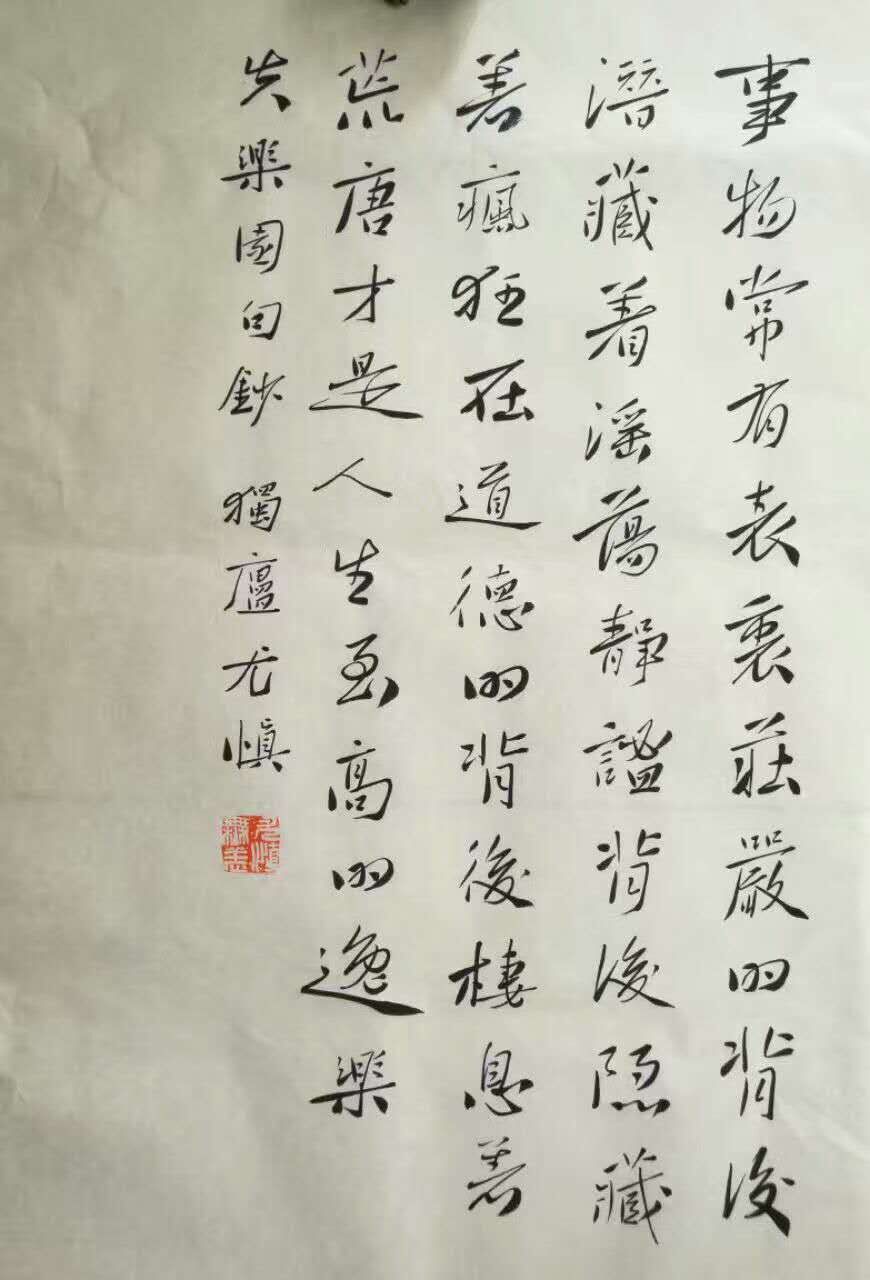 事物常有表裏莊嚴的背後
潛藏着淫蕩靜謐背後隐藏
着瘋狂在道德的背後棲息着
荒唐才是人生至高的逸樂
失樂園句鈔 獨廬尤慎